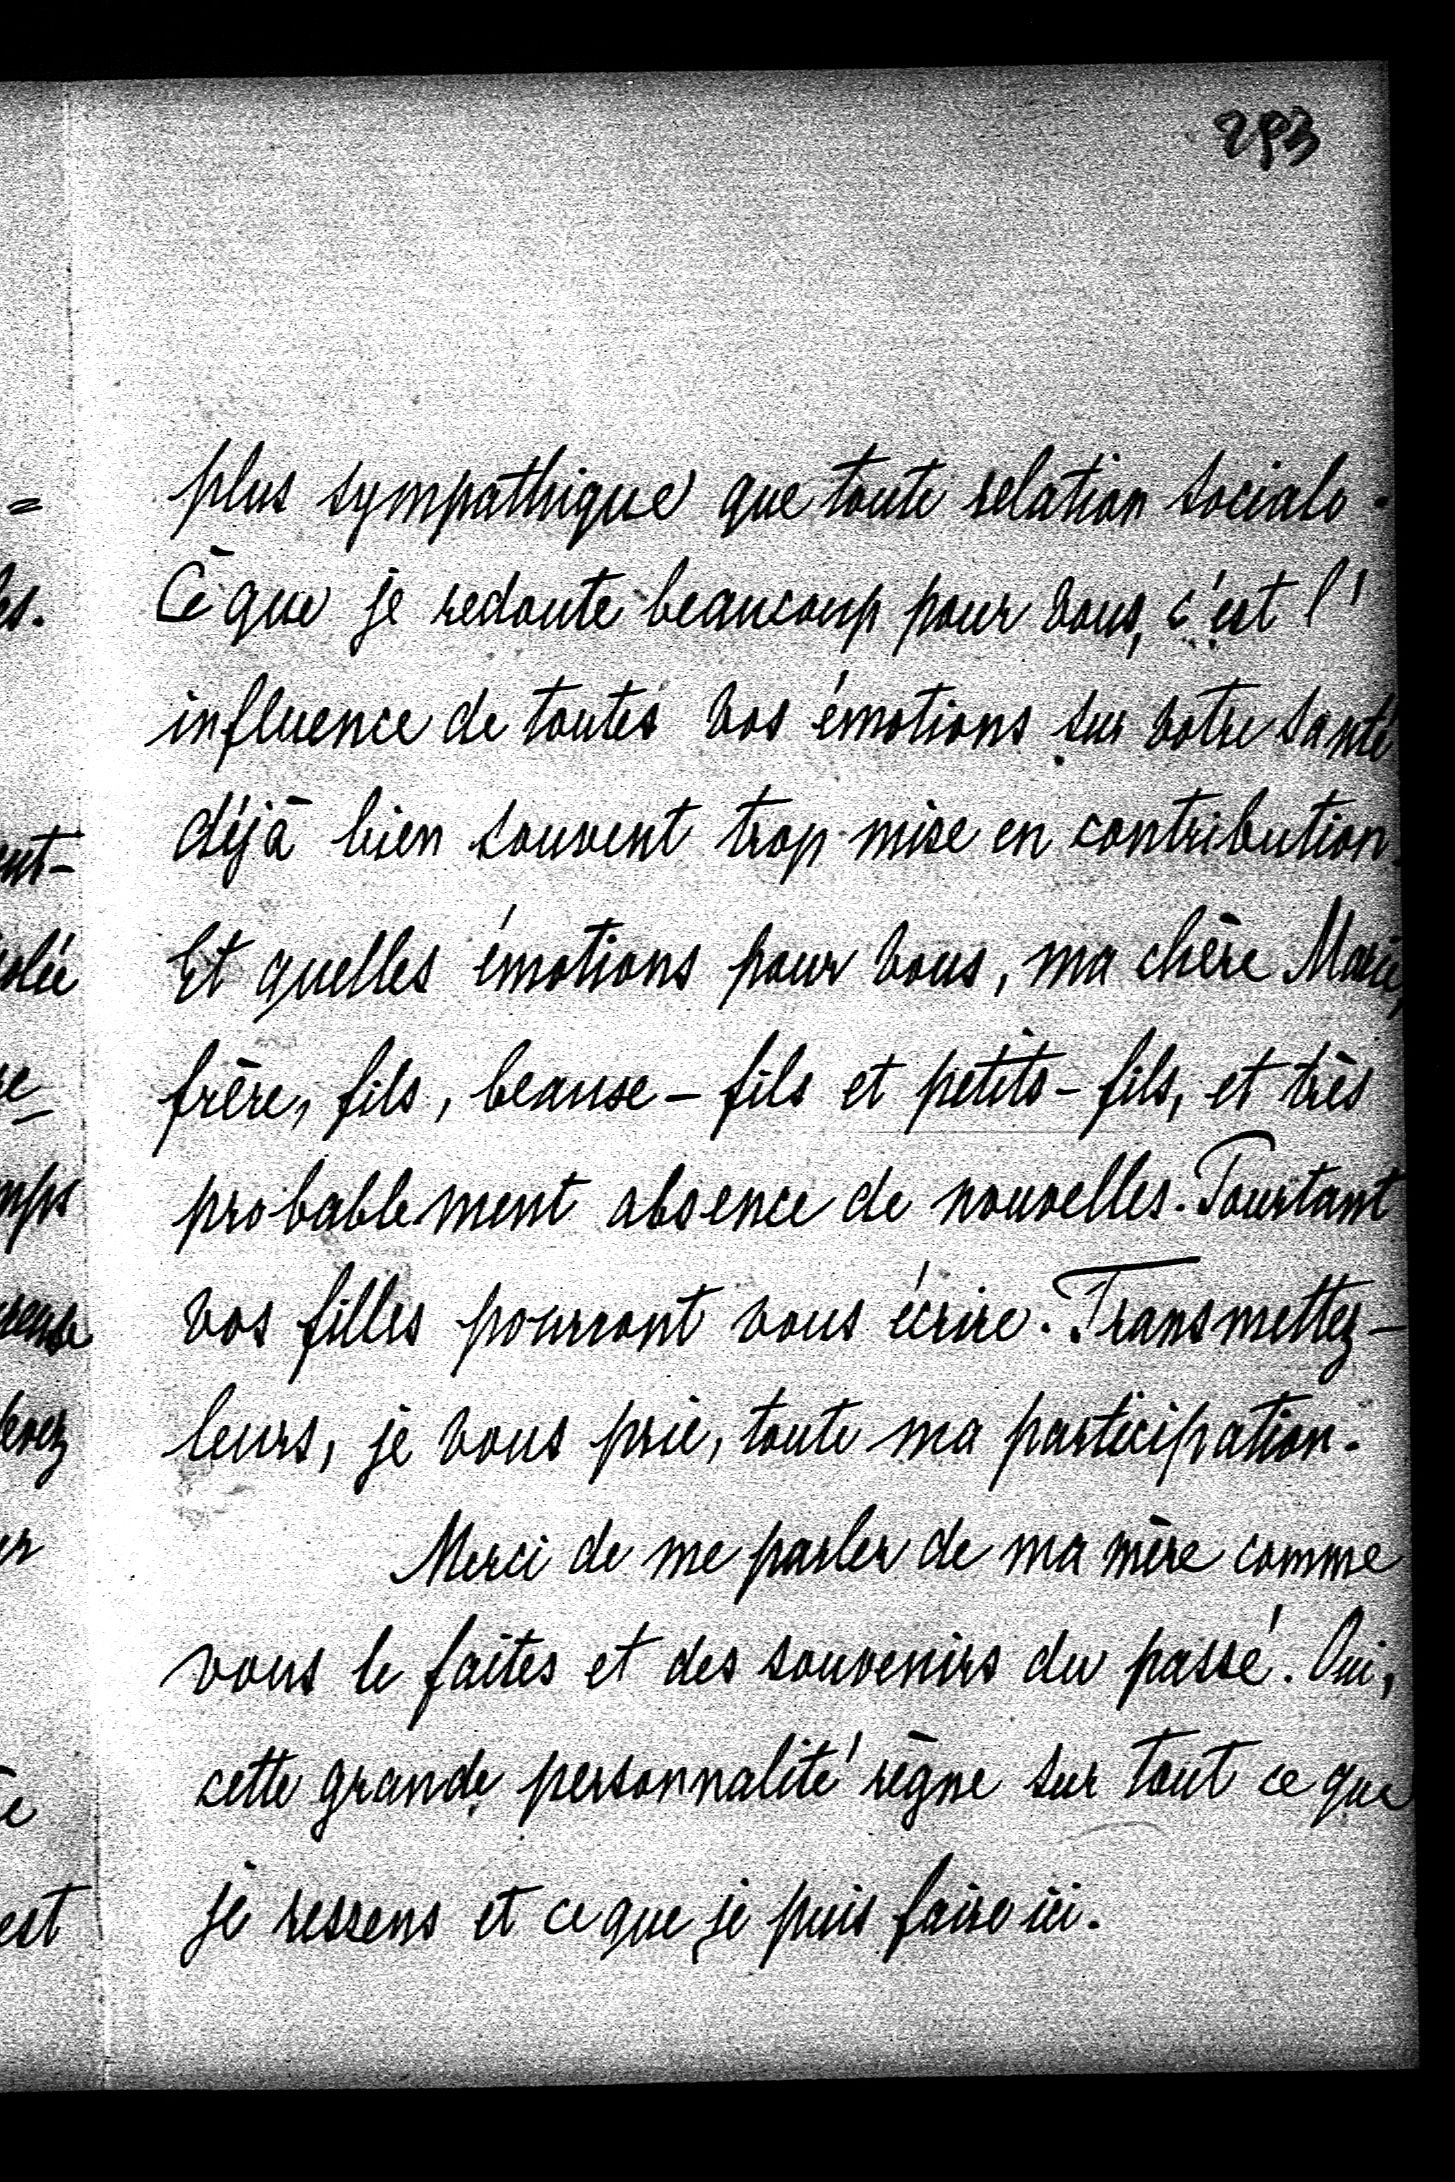 293
plus sympathique que toute relation sociale.
Ce que je redoute beaucoup pour vous, c'est l'
influence de toutes vos émotions sur votre santé
déjà bien souvent trop mise en contribution.
Et quelles émotions pour vous, ma chère Marie,
frère, fils, beause-fils et petits-fils, et très
probablement absence de nouvelles. Pourtant
vos filles pourront vous écrire. Transmettez-
leurs, je vous prie, toute ma participation.
Merci de me parler de ma mère comme
vous le faites et des souvenirs du passé. Oui,
cette grande personnalité règne sur tout ce que
je ressens et ce que je puis faire ici.